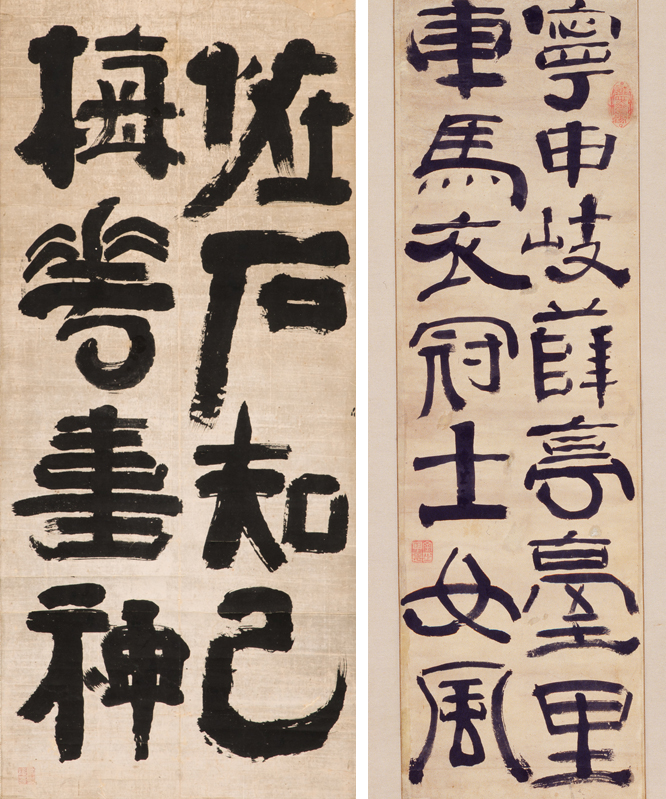 恠石知己
梅花畫神
寧申岐薛亭臺里
車馬衣冠士女風